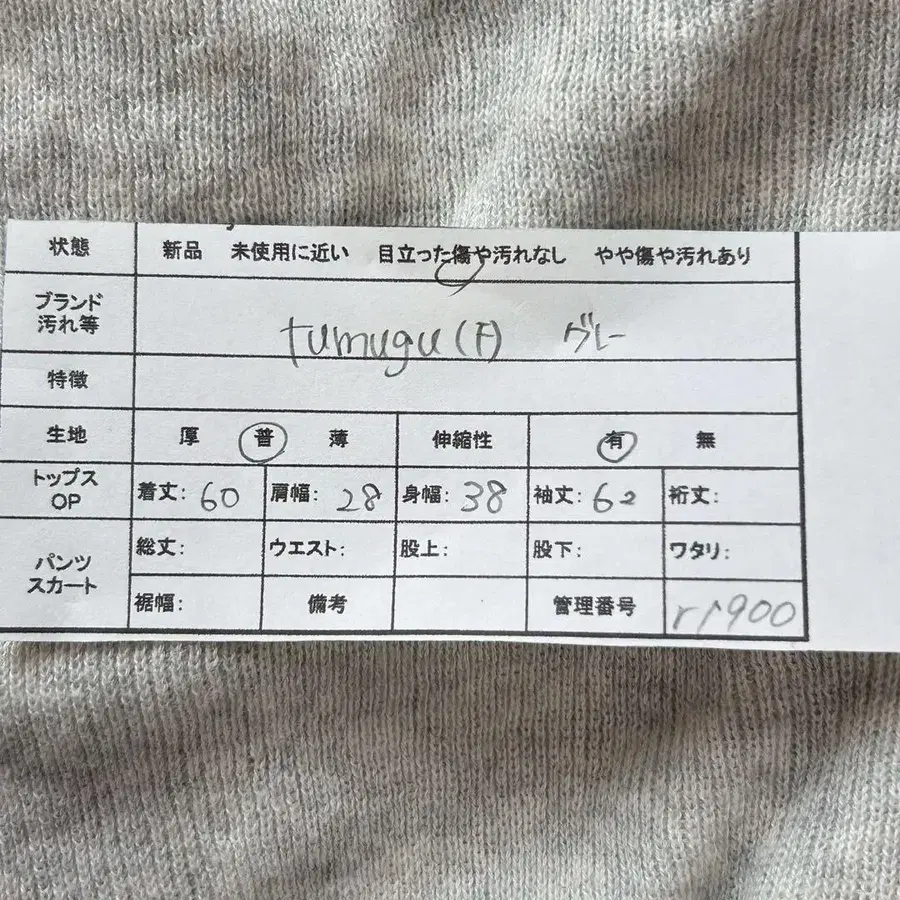 状態 新品 未使用に近い 目立った傷や汚れなし やや傷や汚れあり
ブランド
汚れ等
tumugu(F) グレー
特徴
生地 厚 普 薄 伸縮性 有 無
トップス
OP
着丈: 60 肩幅: 28 身幅: 38 袖丈: 62 裄丈:
パンツ
スカート
総丈: ウエスト: 股上: 股下: ワタリ:
裾幅: 備考 管理番号 r1900